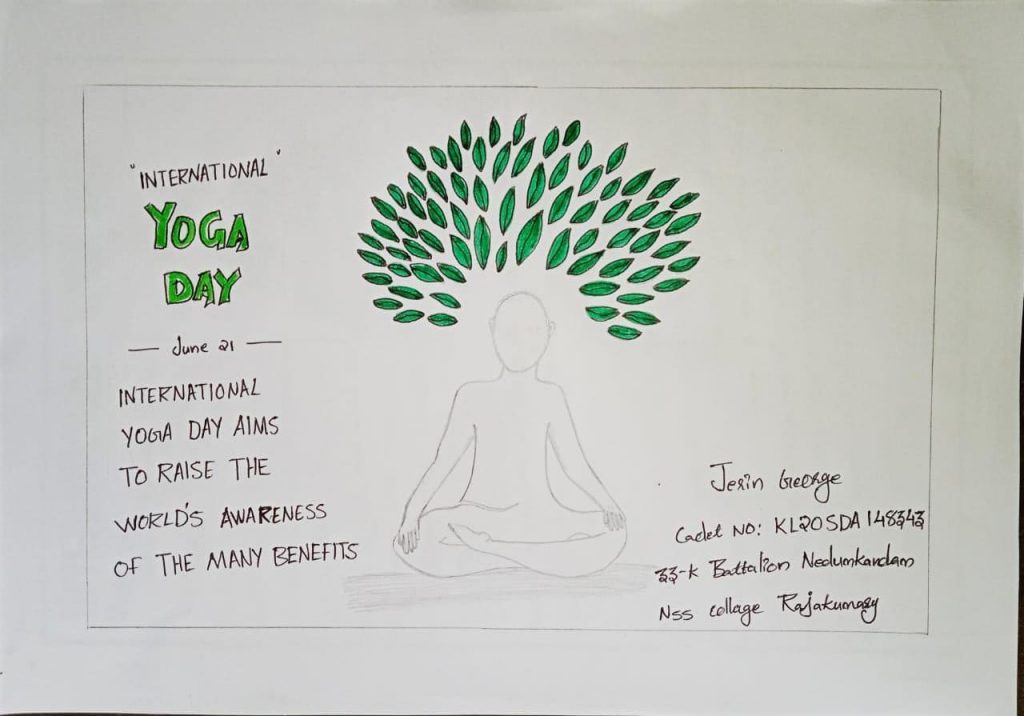 "INTERNATIONAL"
YOGA
DAY
— June 21 —
INTERNATIONAL
YOGA DAY AIMS
TO RAISE THE
WORLD'S AWARENESS
OF THE MANY BENEFITS
Jerin George
Cadet NO: KL20SDA148343
33-K Battalion Nedumkandam
Nss collage Rajakumary